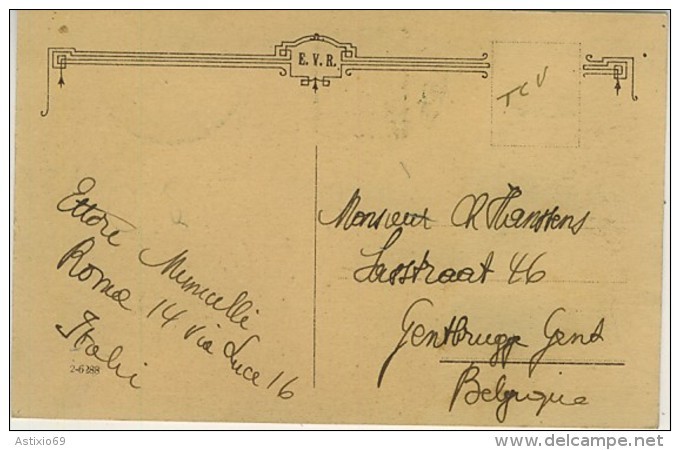 E. V. R.
TCV
Ettore
Roma 14 Via Luce 16
2-6288
Monsieur Ch Hanssens
Lasstraat 46
Gentbrugge Gend
Belgique
Astixio69
www.delcampe.net